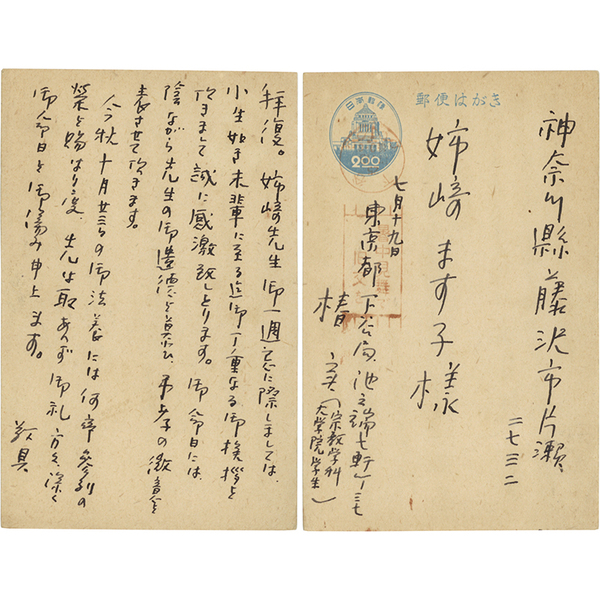 郵便はがき
日本郵便
2.00
神奈川縣藤沢市片瀬
二七三二
姉崎ます子様
七月十九日
東京都下谷局池之端七軒丁三七
椿 実(宗教学科
大学院学生)
拝復。姉崎先生御一週忌に際しましては、
小生如き末輩に至る迄御丁重なる御挨拶を
頂きまして誠に感激致しとります。御命日には、
陰ながら先生の御遺徳を慕ひ、の微意を
表させて頂きます。
今秋十月廿三日の御法養には何卒参列の
栄を賜はり度、先は取あへず御礼方々、深く
御命日を御偲み申上ます。
敬具